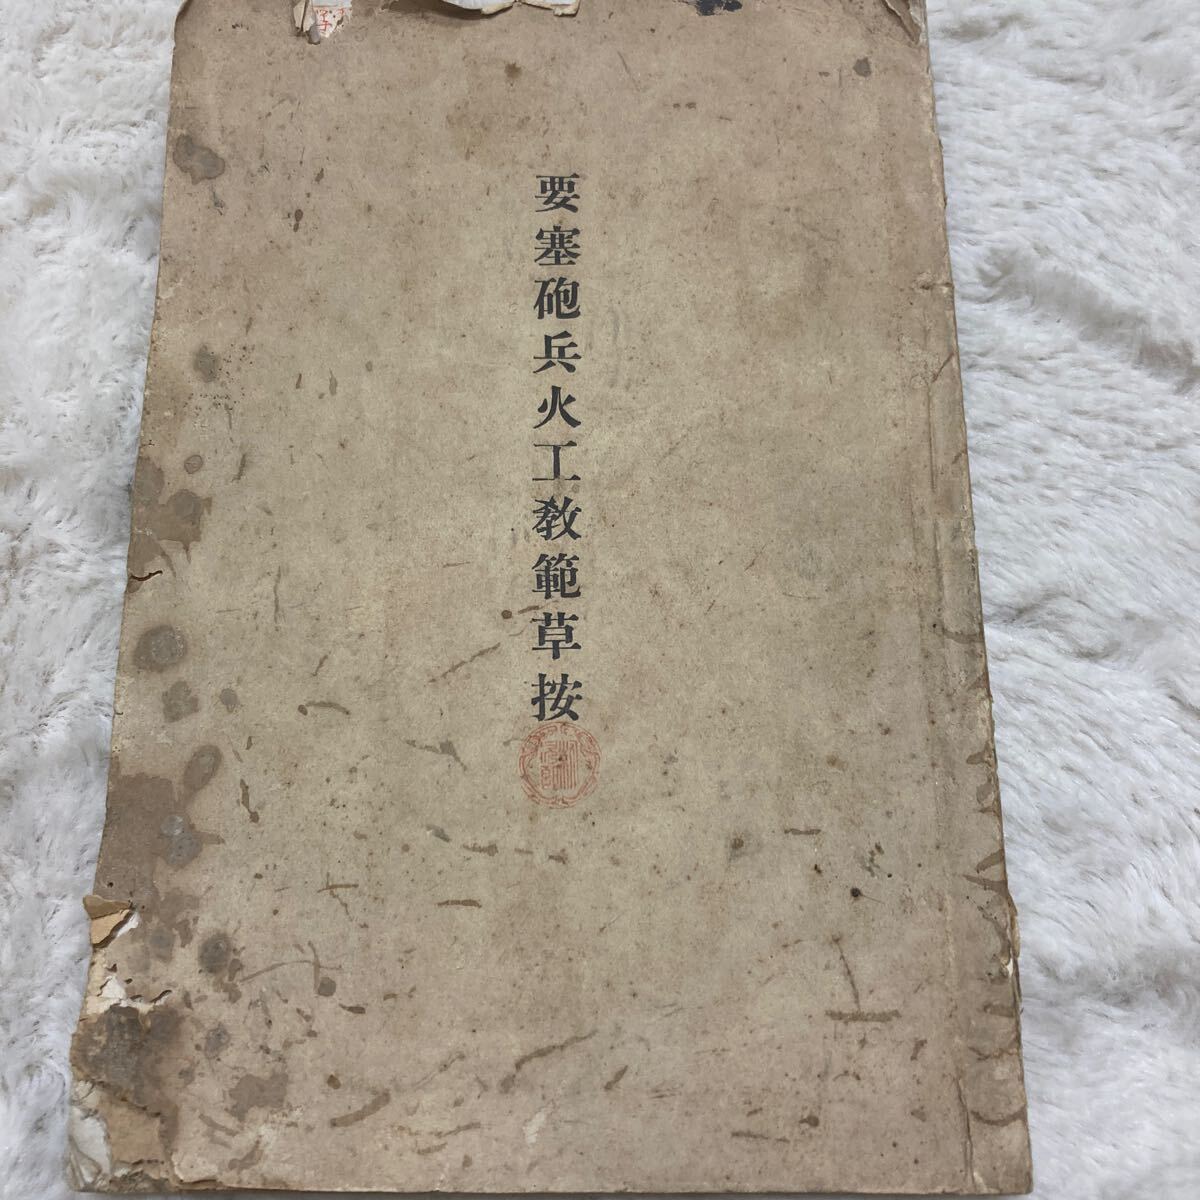 要塞砲兵火工教範草按